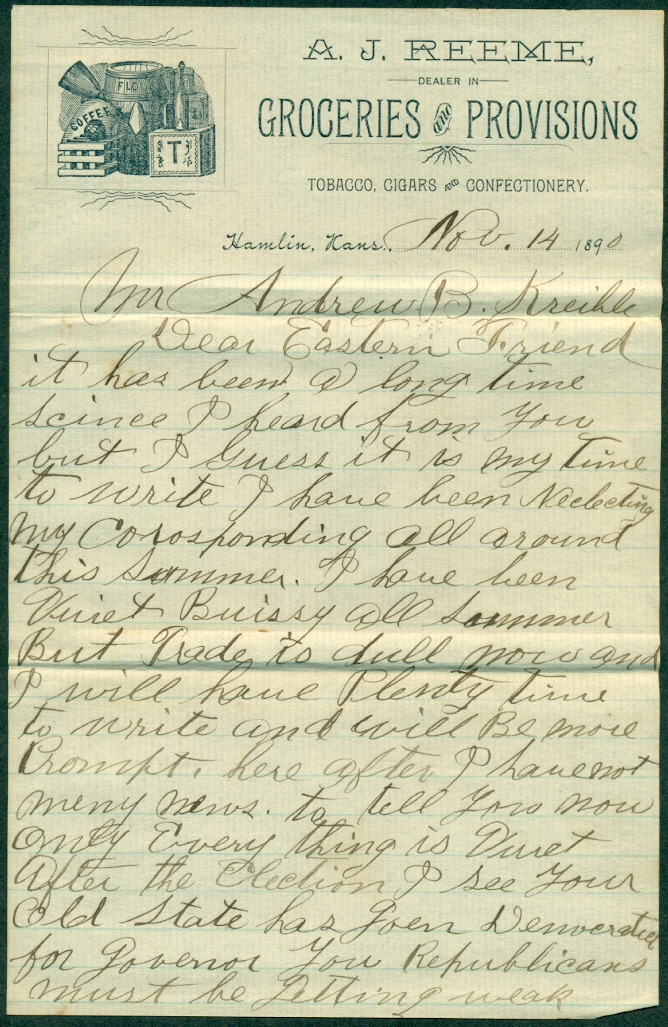 FLOUR
COFFEE
T
A. J. REEME,
DEALER IN
GROCERIES and PROVISIONS
TOBACCO, CIGARS AND CONFECTIONERY.
Hamlin, Kans., Nov. 14 1890
Mr Andrew B. Kreible
Dear Eastern Friend
it has been a long time
scince I heard from You
but I Guess it is my time
to write I have been Neclecting
my Corosponding all around
this summer. I have been
Quiet Buissy all summer
But Trade is dull now and
I will have Plenty time
to write and will Be more
Prompt. here after I have not
meny news. to tell You now
only Every thing is Quiet
After the Election I see Your
Old State has Goen Democratic
for Govenor You Republicans
must be Getting weak